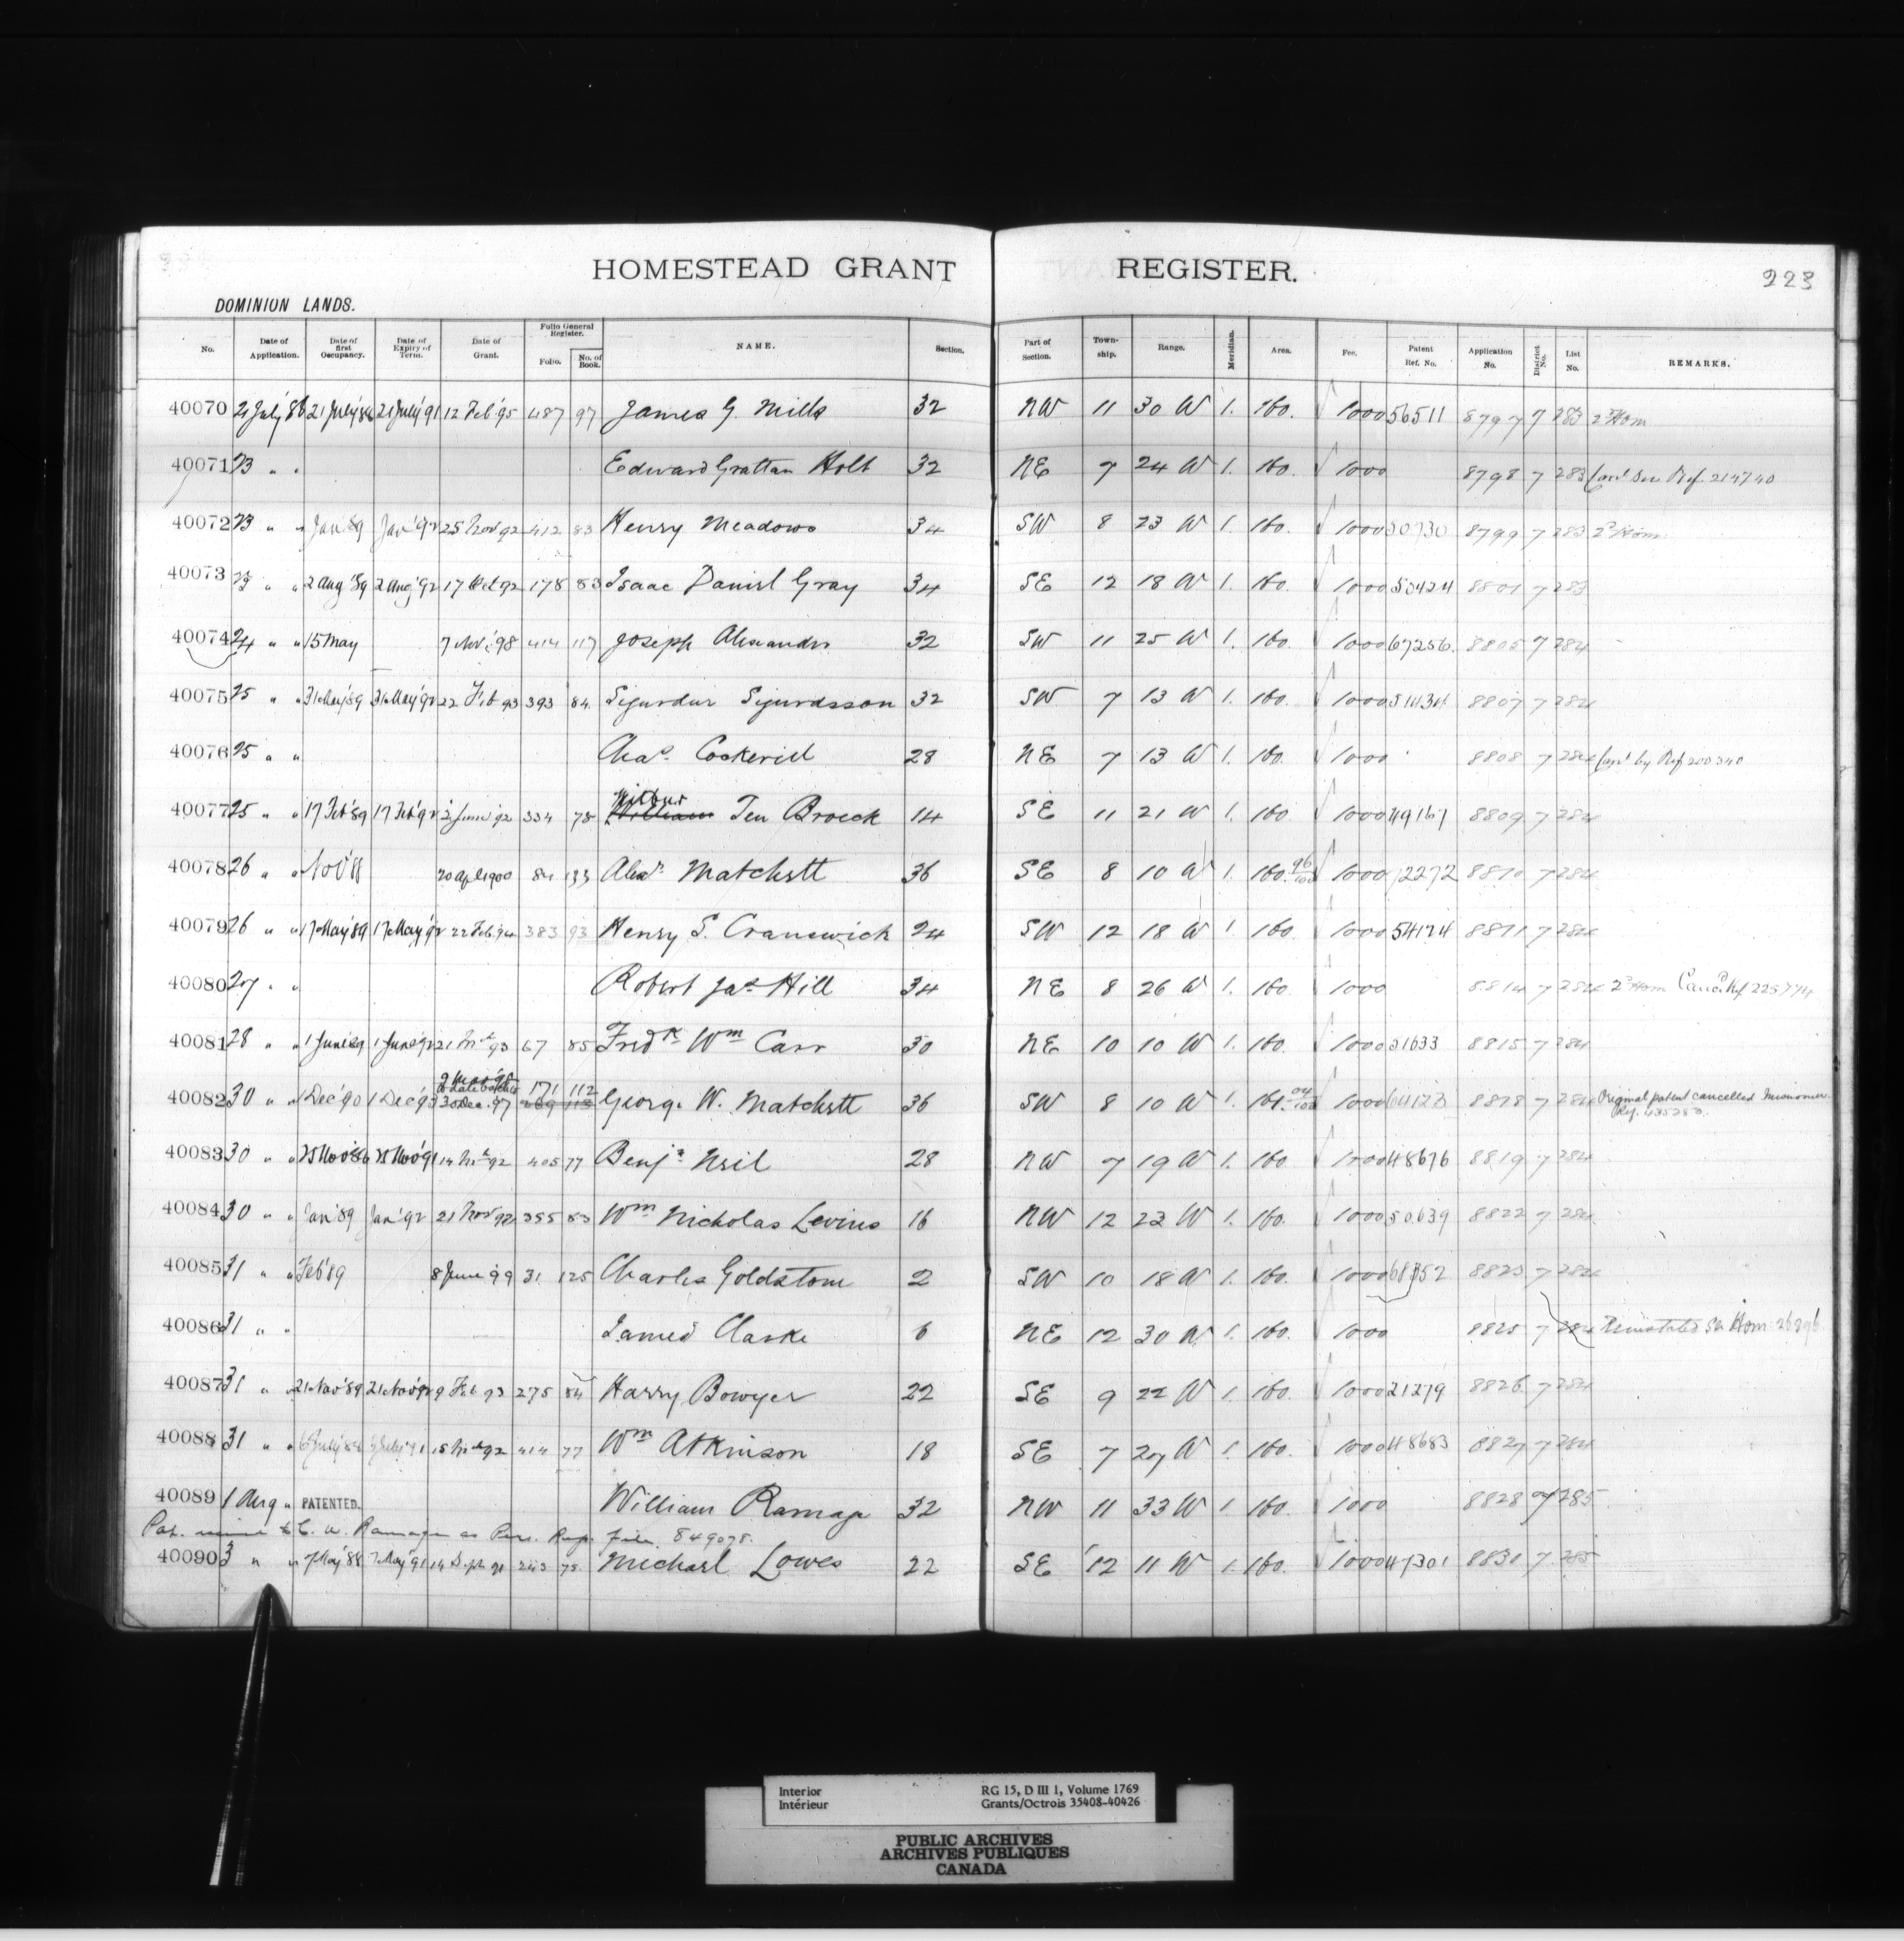 HOMESTEAD GRANT REGISTER. 223
DOMINION LANDS.
No. Date of Application. Date of first Occupancy. Date of Expiry of Term. Date of Grant. Folio General Register. Folio. No. of Book. NAME. Section. Part of Section. Town-ship. Range. Meridian. Area. Fee. Patent Ref. No. Application No. District No. List No. REMARKS.
40070 21 July '86 21 July '86 21 July '91 12 Feb '95 487 97 James G. Mills 32 NW 11 30 W 1. 160. 1000 56511 8797 7 283 2d Hom
40071 23 " " Edward Grattan Holt 32 NE 7 24 W 1. 160. 1000 8798 7 283 Can'd see Ref. 214740
40072 23 " " Jan '89 Jan '92 25 Nov 92 412 83 Henry Meadows 34 SW 8 23 W 1. 160. 1000 50730 8799 7 283 2d Hom
40073 23 " " 2 Aug '89 2 Aug '92 17 Oct 92 178 83 Isaac Daniel Gray 34 SE 12 18 W 1. 160. 1000 50424 8801 7 283
40074 24 " " 15 May 7 Nov '98 414 117 Joseph Alexander 32 SW 11 25 W 1. 160. 1000 67256. 8805 7 284
40075 25 " " 31 May '89 31 May '92 22 Feb 93 393 84 Sigurdur Sigurdsson 32 SW 7 13 W 1. 160. 1000 51434 8807 7 284
40076 25 " " Chas. Cockerill 28 NE 7 13 W 1. 160. 1000 8808 7 284 Can'd by Ref 200340
40077 25 " " 17 Feb '89 17 Feb '92 2 June '92 334 78 William Wilbur Ten Broeck 14 SE 11 21 W 1. 160 1000 49167 8809 7 284
40078 26 " " Nov '88 20 Apl 1900 84 133 Alexr. Matchett 36 SE 8 10 W 1. 160. 96/100 1000 72272 8810 7 284
40079 26 " " 17 May '89 17 May '92 22 Feb. '94 383 93 Henry S. Cranswick 24 SW 12 18 W 1. 160 1000 54124 8811 7 284
40080 27 " " Robert Jas. Hill 34 NE 8 26 W 1. 160. 1000 8814 7 284 2d Hom Canc'd Ref 225774
40081 28 " " 1 June '89 1 June '92 21 Mch 93 67 85 Fredk Wm Carr 30 NE 10 10 W 1. 160. 1000 51633 8815 7 284
40082 30 " " 1 Dec '90 1 Dec '93 30 Dec. '97 269 112 171 112 George W. Matchett 36 SW 8 10 W 1. 161. 04/100 1000 64123 8818 7 284 Original patent cancelled Misnomer.
Ref. 435280.
40083 30 " " 25 Nov '86 25 Nov '91 14 Mch 92 405 77 Benja Neil 28 NW 7 19 W 1. 160 1000 48676 8819 7 284
40084 30 " " Jan '89 Jan '92 21 Nov '92 355 83 Wm Nicholas Levins 16 NW 12 22 W 1. 160. 1000 50639 8822 7 284
40085 31 " " Feb '89 8 June '99 31 125 Charles Goldstone 2 SW 10 18 W 1. 160. 1000 8823 7 284
40086 31 " " James Clarke 6 NE 12 30 W 1. 160. 1000 8825 7 284 Reinstated see Hom 26896
40087 31 " " 21 Nov '89 21 Nov '92 9 Feb 93 275 84 Harry Bowyer 22 SE 9 22 W 1. 160. 1000 21279 8826 7 284
40088 31 " " 15 Mch 92 414 77 Wm Atkinson 18 SE 7 27 W 1. 160. 1000 48683 8827 7 284
40089 1 Aug " PATENTED. William Ramage 32 NW 11 33 W 1 160. 1000 8828 7 285
Pat. to C. W. Ramage as Per. Rep. File. 849078.
40090 3 " " 7 May '88 7 May '91 14 Sept 91 243 75 Michael Lowes 22 SE 12 11 W 1. 160. 1000 47301 8831 7 285
Interior RG 15, D III 1, Volume 1769
Intérieur Grants/Octrois 35408-40426
PUBLIC ARCHIVES
ARCHIVES PUBLIQUES
CANADA